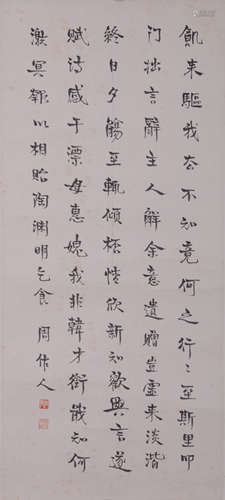 飢来驅我去不知竟何之行〻至斯里叩
门拙言辭主人解余意遺贈豈虚来淡谐
終日夕觴至輒傾桮情欣新知歡興言遂
賦诗感子漂母惠媿我非韓才銜戢知何
謝冥報以相貽陶渊明乞食 周作人